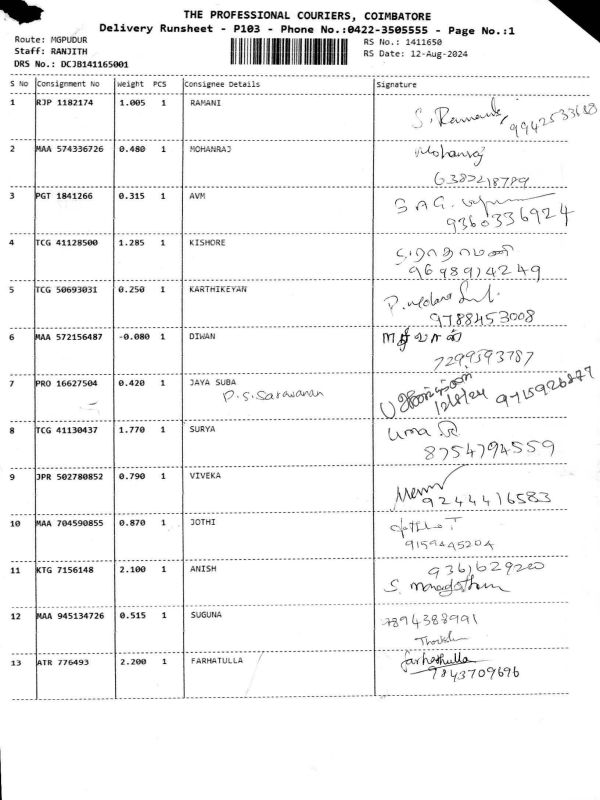 THE PROFESSIONAL COURIERS, COIMBATORE
Delivery Runsheet - P103 - Phone No.:0422-3505555 - Page No.:1
Route: MGPUDUR
RS No.: 1411650
Staff: RANJITH
RS Date: 12-Aug-2024
DRS No.: DCJB141165001
S No Consignment No Weight PCS Consignee Details Signature
1 RJP 1182174 1.005 1 RAMANI
S. Ramani
9942533688
2 MAA 574336726 0.480 1 MOHANRAJ Mohanraj
6382218799
3 PGT 1841266 0.315 1 AVM
9360336924
4 TCG 41128500 1.285 1 KISHORE
9698914249
5 TCG 50693031 0.250 1 KARTHIKEYAN
9788453008
6 MAA 572156487 -0.080 1 DIWAN
7299393787
7 PRO 16627504 0.420 1 JAYA SUBA
P.S. Sarawanan
12/8/24 9715926877
8 TCG 41130437 1.770 1 SURYA
8754794559
9 JPR 502780852 0.790 1 VIVEKA
9244416583
10 MAA 704590855 0.870 1 JOTHI
9159445204
11 KTG 7156148 2.100 1 ANISH
9361629200
12 MAA 945134726 0.515 1 SUGUNA
7894388991
13 ATR 776493 2.200 1 FARHATULLA farhathulla
9843709696